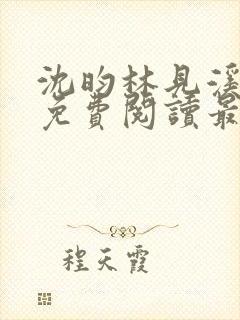 沈昀林見溪
免費閱讀最
程天霞